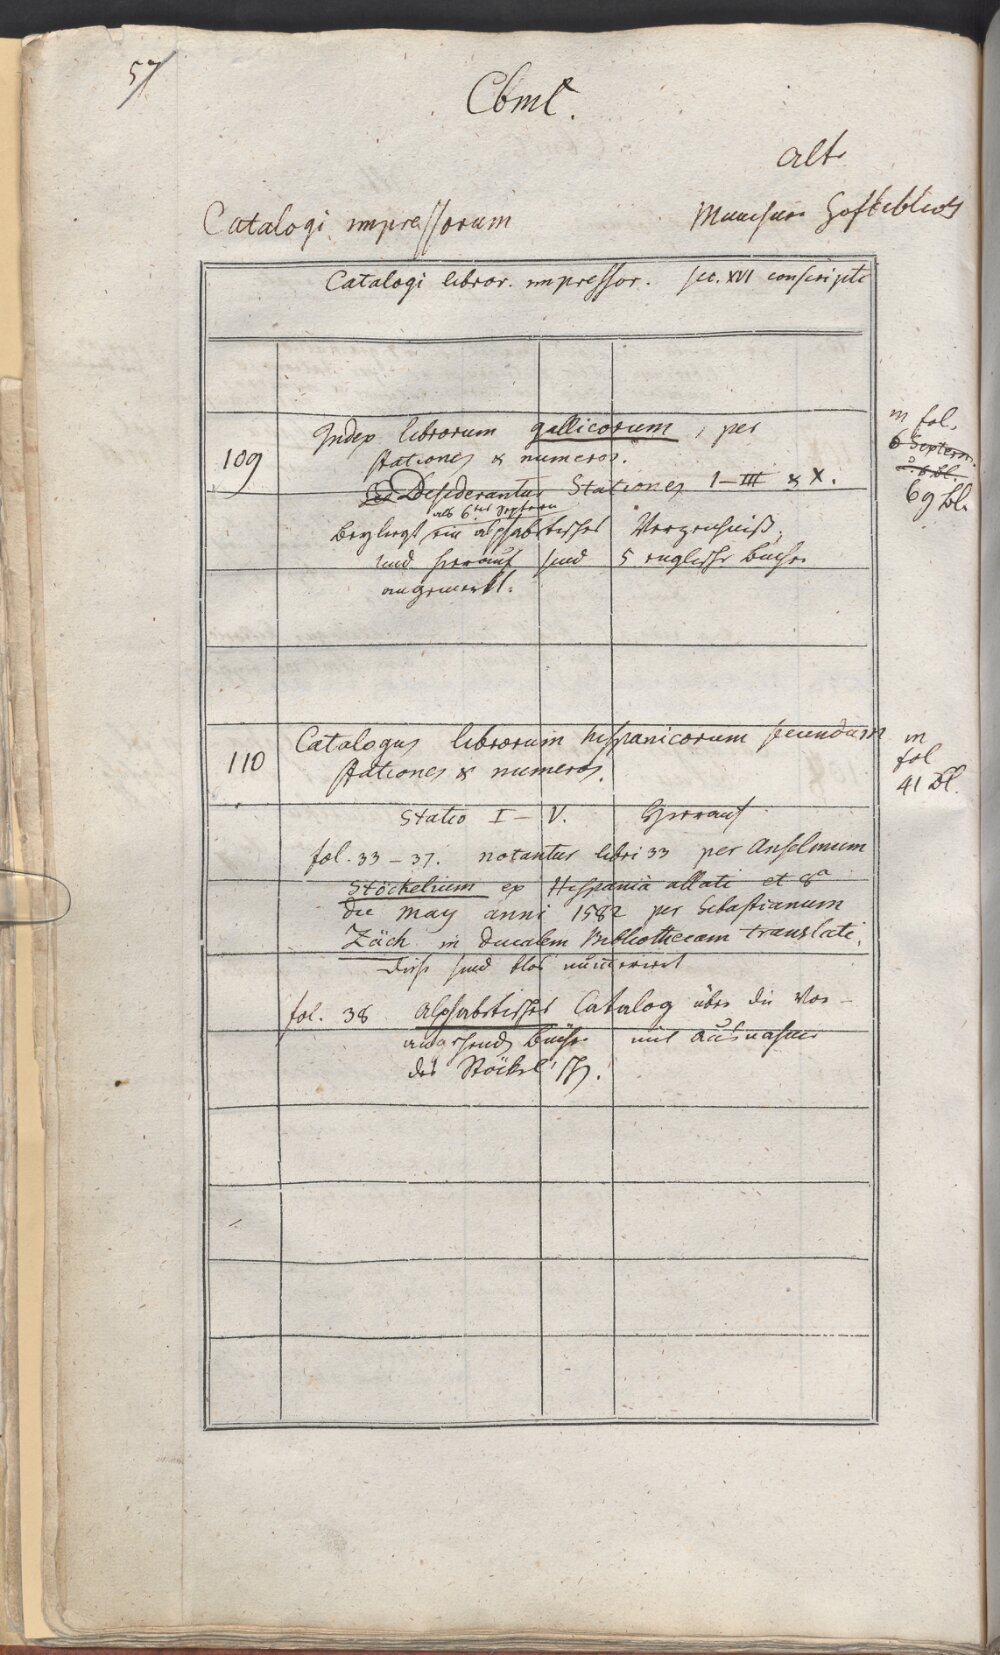 57
Cbmc.
alte
Catalogi impressorum
Münchner Hofbiblioth
Catalogi libror. impressor. sec. XVI conscripti
109
Index librorum gallicorum, per
stationes & numeros.
Desiderantur Stationes I-III & X.
als 6ter Septern
Beyliegt ein alphabetisches Verzeichniß,
und hierauf sind 5 englische Bücher
angemerkt.
in fol.
6 Septern.
6 Bl.
69 Bl.
110
Catalogus librorum hispanicorum secundum
stationes & numeros.
in
fol
41 Bl.
Statio I - V. Hierauf
fol. 33 - 37. notantur libri 33 per Anselmum
Stöckelium ex Hispania allati et 8a
die May anni 1582 per Sebastianum
Zäch in ducalem Bibliothecam translati.
Diese sind blos numerirt
fol. 38 alphabetischer Catalog über die vor-
angehenden Bücher mit Ausnahme
der Stöckel'schen.